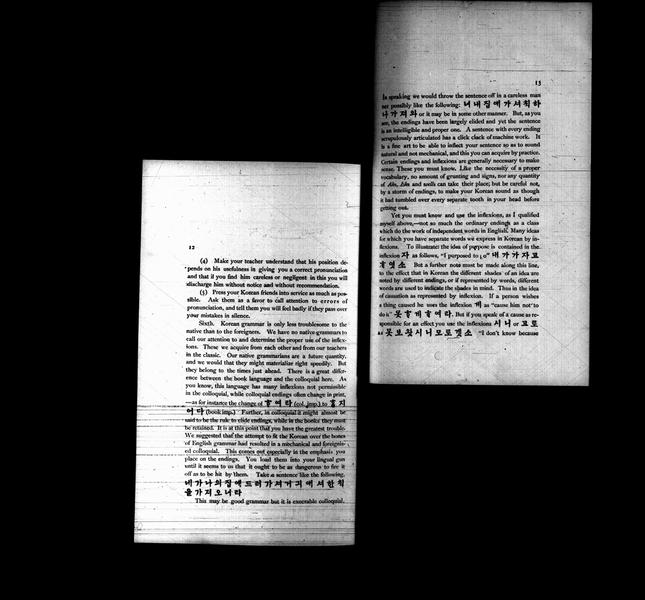 12
(4) Make your teacher understand that his position de-
pends on his usefulness in giving you a correct pronunciation
and that if you find him careless or negligent in this you will
discharge him without notice and without recommendation.
(5) Press your Korean friends into service as much as pos-
sible. Ask them as a favor to call attention to errors of
pronunciation, and tell them you will feel badly if they pass over
your mistakes in silence.
Sixth. Korean grammar is only less troublesome to the
native than to the foreigners. We have no native grammars to
call our attention to and determine the proper use of the inflex-
ions. These we acquire from each other and from our teachers
in the classic. Our native grammarians are a future quantity,
and we would that they might materialize right speedily. But
they belong to the times just ahead. There is a great differ-
ence between the book language and the colloquial here. As
you know, this language has many inflexions not permissible
in the colloquial, while colloquial endings often change in print,
—as for instance the change of 하여라 (col. imp.) to 하지
어다 (book imp.) Further, in colloquial it might almost be
said to be the rule to elide endings, while in the books they must
be retained. It is at this point that you have the greatest trouble.
We suggested that the attempt to fit the Korean over the bones
of English grammar had resulted in a mechanical and foreignis-
ed colloquial. This comes out especially in the emphasis you
place on the endings. You load them into your lingual gun
until it seems to us that it ought to be as dangerous to fire it
off as to be hit by them. Take a sentence like the following,
네가나의집에드러가셔거긔에셔한칙
을가지오너라
This may be good grammar but it is execrable colloquial.
13
In speaking we would throw the sentence off in a careless man
ner possibly like the following: 너내집에가셔칙하
나가져와 or it may be in some other manner. But, as you
see, the endings have been largely elided and yet the sentence
is an intelligible and proper one. A sentence with every ending
scrupulously articulated has a click clack of machine work. It
is a fine art to be able to inflect your sentence so as to sound
natural and not mechanical, and this you can acquire by practice.
Certain endings and inflexions are generally necessary to make
sense. These you must know. Like the necessity of a proper
vocabulary, no amount of grunting and signs, nor any quantity
of and swells can take their place; but be careful not,
by a storm of endings, to make your Korean sound as though
it had tumbled over every separate tooth in your head before
getting out.
Yet you must know and use the inflexions, as I qualified
myself above,—not so much the ordinary endings as a class
which do the work of independent words in English. Many ideas
for which you have separate words we express in Korean by in-
flexions. To illustrate the idea of purpose is contained in the
inflexion 자 as follows, "I purposed to go" 내가가자고
하엿소 But a further note must be made along this line,
to the effect that in Korean the different shades of an idea are
noted by different endings, or if represented by words, different
words are used to indicate the shades in mind. Thus in the idea
of causation as represented by inflexion. If a person wishes
a thing caused he uses the inflexion 게 as "cause him not to
do it" 못하게하여라. But if you speak of a cause as re-
sponsible for an effect you use the inflexions 시니 or 고로
as 못보왓시니모로겟소 "I don't know because